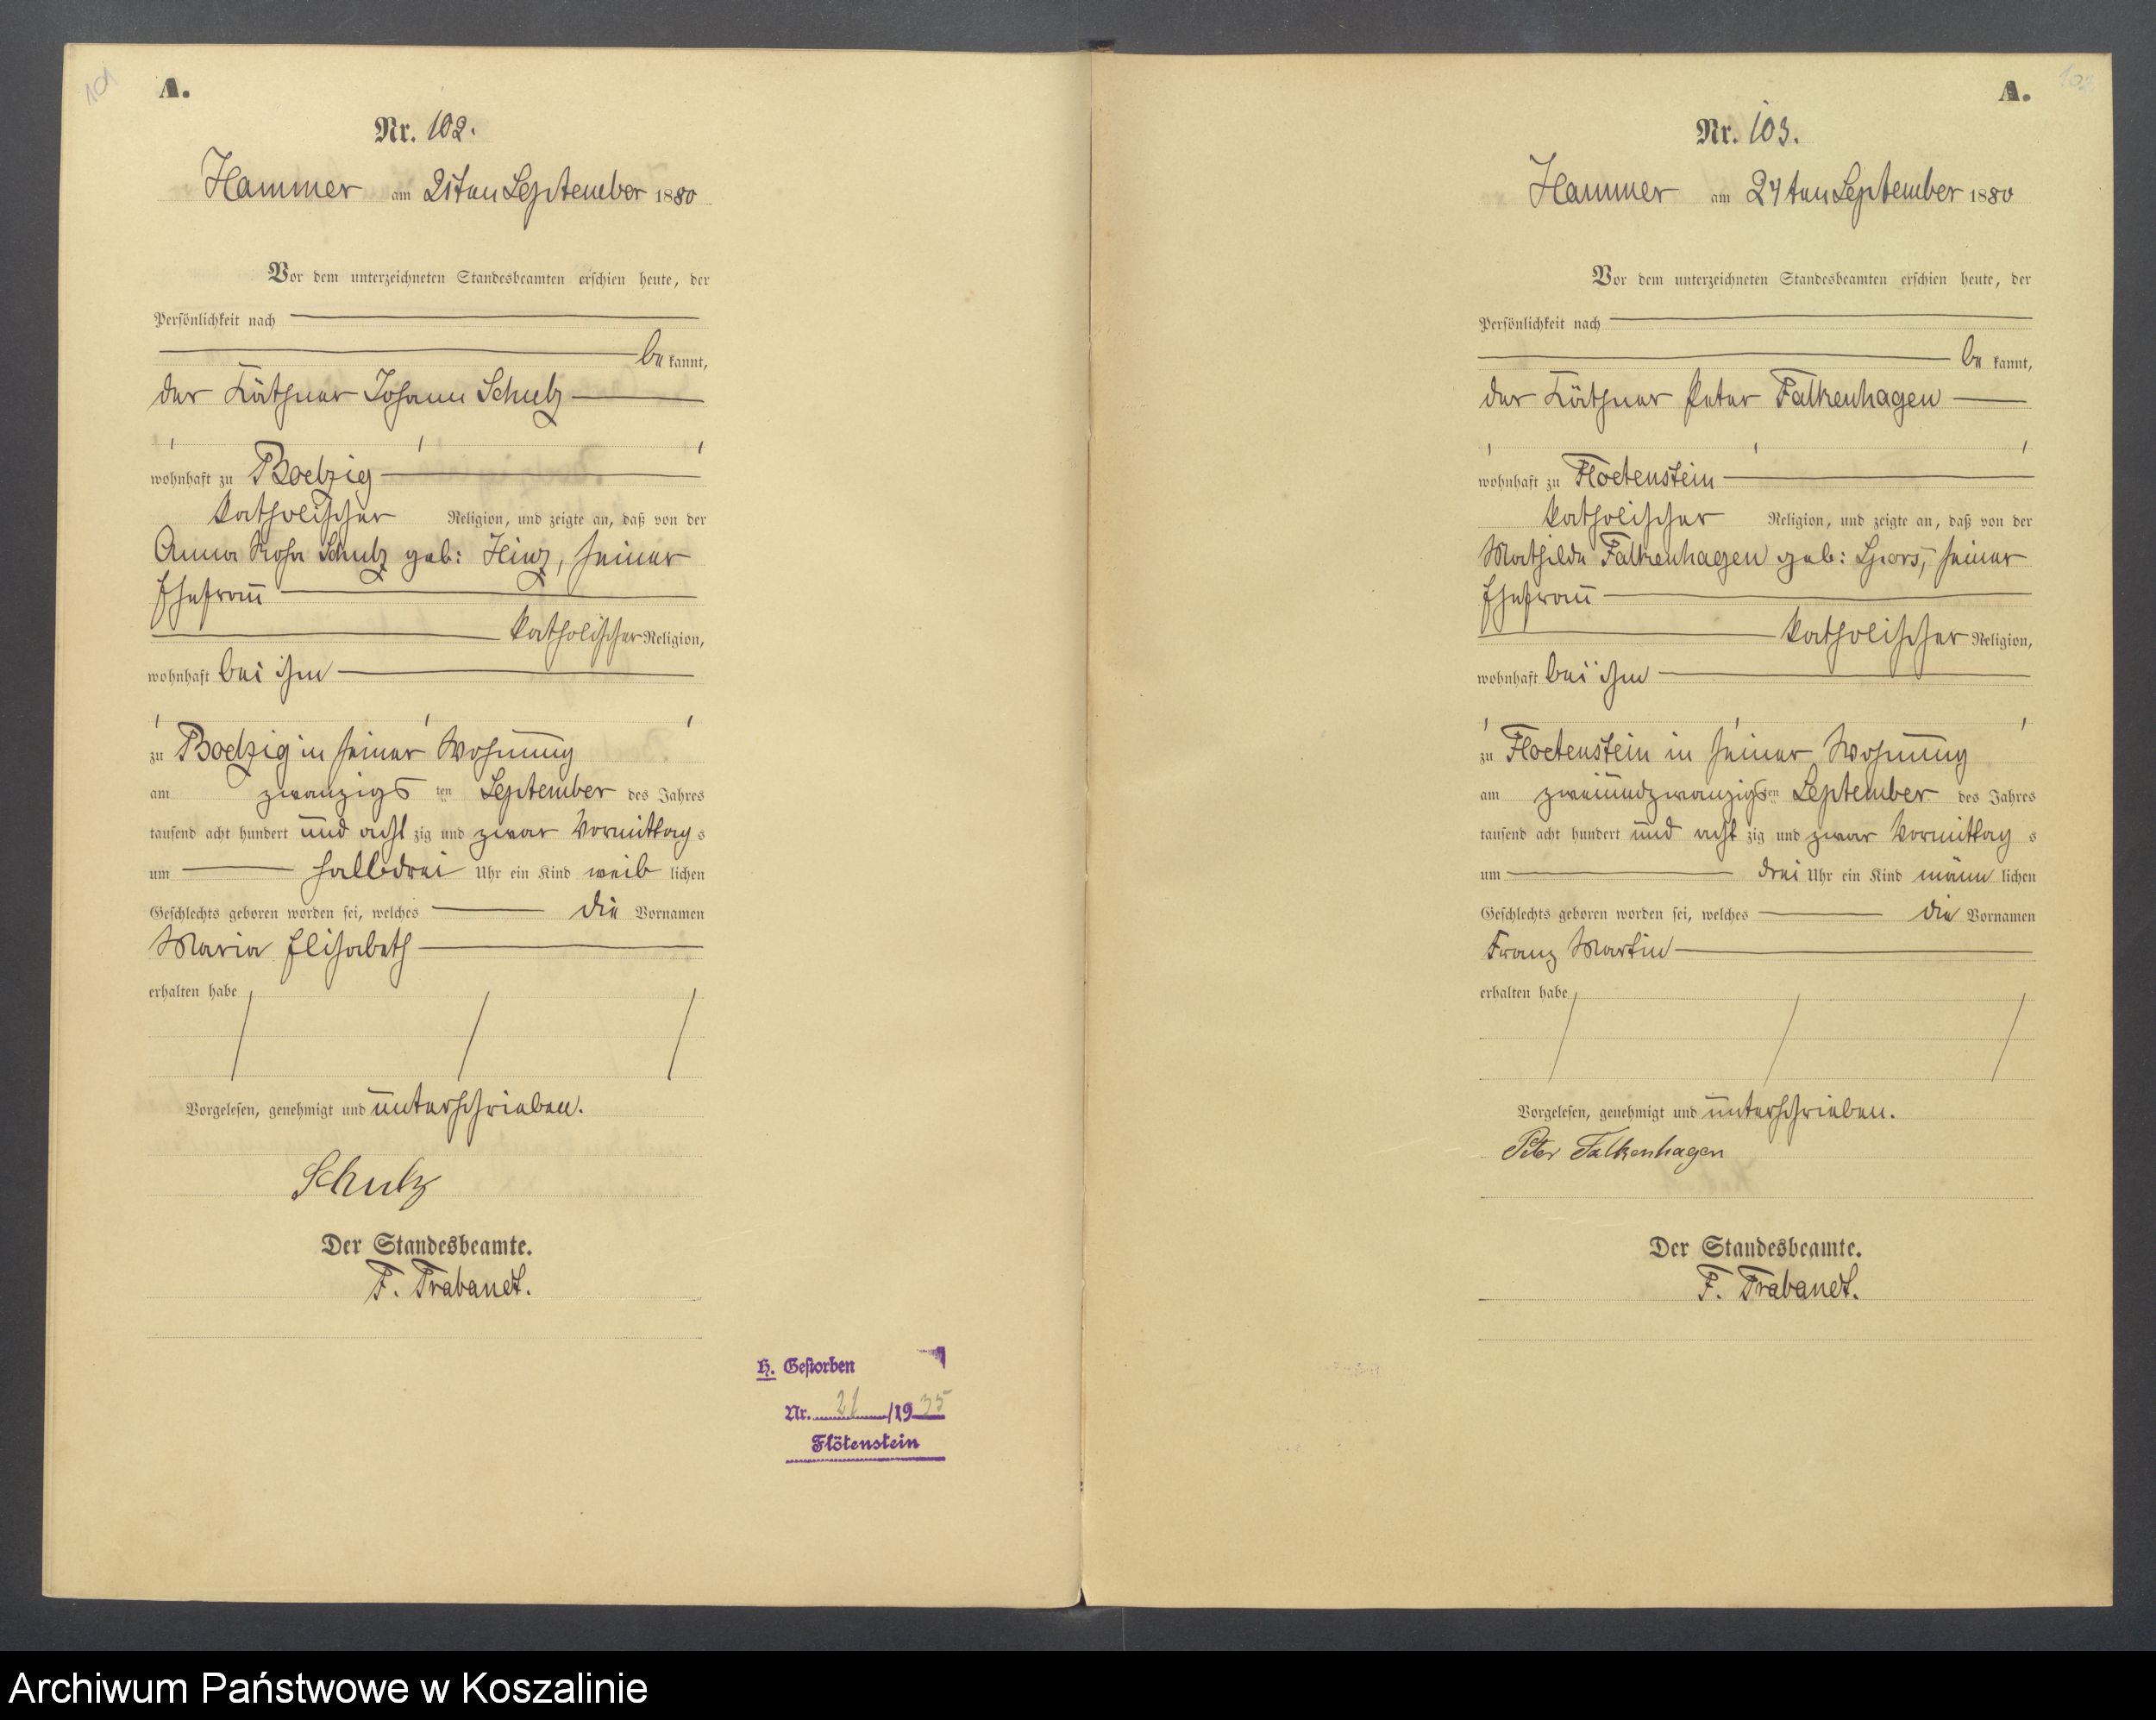 101
A.
Nr. 102.
Hammer am 21ten September 1880
Vor dem unterzeichneten Standesbeamten erschien heute, der
Persönlichkeit nach
be kannt,
der Käthner Johann Schulz
wohnhaft zu Boelzig
katholischer Religion, und zeigte an, daß von der
Anna Rosa Schulz geb: Hinz, seiner
Ehefrau
katholischer Religion,
wohnhaft bei ihm
zu Boelzig in seiner Wohnung
am zwanzigs ten September des Jahres
tausend acht hundert und acht zig und zwar Vormittag s
um halb drei Uhr ein Kind weib lichen
Geschlechts geboren worden sei, welches die Vornamen
Maria Elisabeth
erhalten habe
Vorgelesen, genehmigt und unterschrieben.
Schulz
Der Standesbeamte.
F. Trabandt.
H. Gestorben
Nr. 21 /1935
Flötenstein
102
A.
Nr. 103.
Hammer am 24ten September 1880
Vor dem unterzeichneten Standesbeamten erschien heute, der
Persönlichkeit nach
be kannt,
der Käthner Peter Falkenhagen
wohnhaft zu Floetenstein
katholischer Religion, und zeigte an, daß von der
Mathilde Falkenhagen geb: Spors, seiner
Ehefrau
katholischer Religion,
wohnhaft bei ihm
zu Floetenstein in seiner Wohnung
am zweiundzwanzigsten September des Jahres
tausend acht hundert und acht zig und zwar Vormittag s
um drei Uhr ein Kind männ lichen
Geschlechts geboren worden sei, welches die Vornamen
Franz Martin
erhalten habe
Vorgelesen, genehmigt und unterschrieben.
Peter Falkenhagen
Der Standesbeamte.
F. Trabandt.
Archiwum Państwowe w Koszalinie